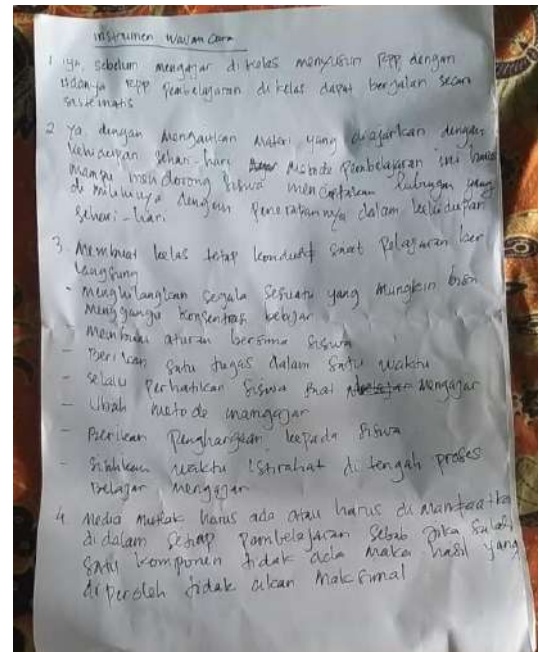 instrumen wawancara
1 iya, sebelum mengajar di kelas menyusun RPP dengan
adanya RPP Pembelajaran di kelas dapat berjalan secara
sistematis
2 Ya, dengan mengaitkan materi yang diajarkan dengan
kehidupan sehari-hari metode Pembelajaran ini harus
mampu mendorong siswa menciptakan hubungan yang
di milikinya dengan Penerapannya dalam kehidupan
sehari-hari
3. Membuat kelas tetap kondusif saat Pelajaran ber
langsung
- menghilangkan segala sesuatu yang mungkin bisa
Menggangu konsentrasi belajar
- Membuat aturan bersama siswa
- Berikan satu tugas dalam satu waktu
- selalu Perhatikan siswa saat mengajar
- Ubah metode mangajar
- Berikan Penghargaan kepada siswa
- Sisihkan waktu istirahat di tengah proses
Belajar mengajar
4 Media mutlak harus ada atau harus di manfaatka
di dalam setiap Pembelajaran sebab jika salah
satu komponen tidak ada maka hasil yang
di peroleh tidak akan maksimal